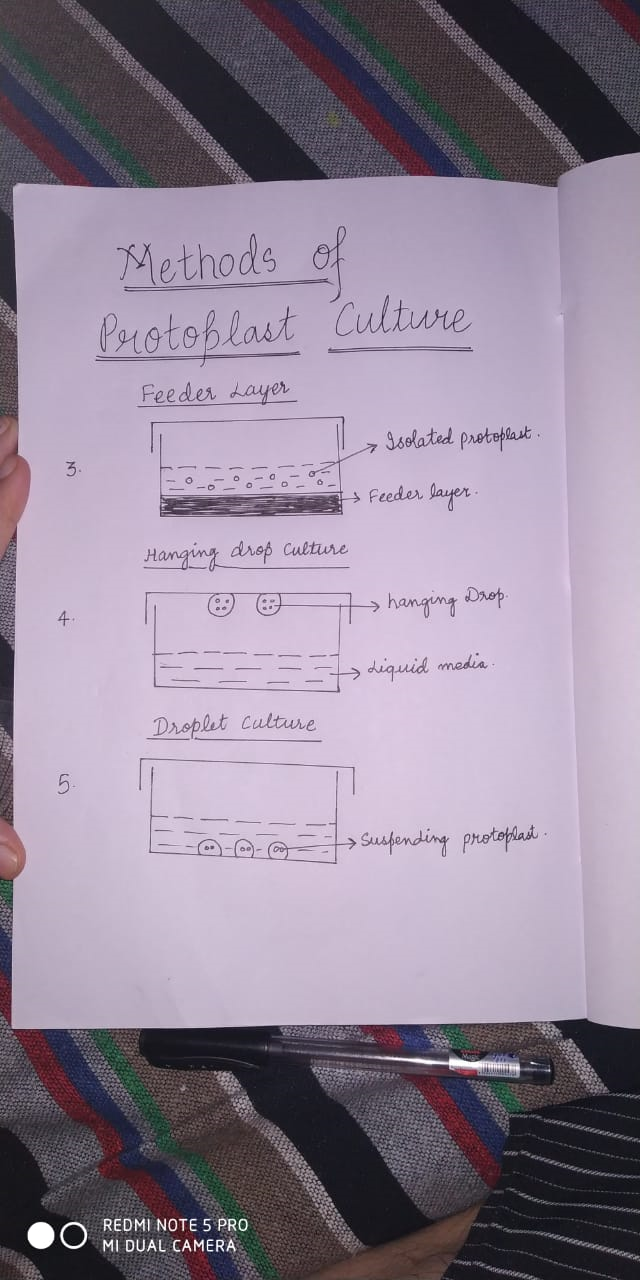 Methods of
Protoplast Culture
Feeder Layer
3.
Isolated protoplast.
Feeder layer.
Hanging drop Culture
4.
hanging Drop.
Liquid media.
Droplet Culture
5.
Suspending protoplast.
REDMI NOTE 5 PRO
MI DUAL CAMERA